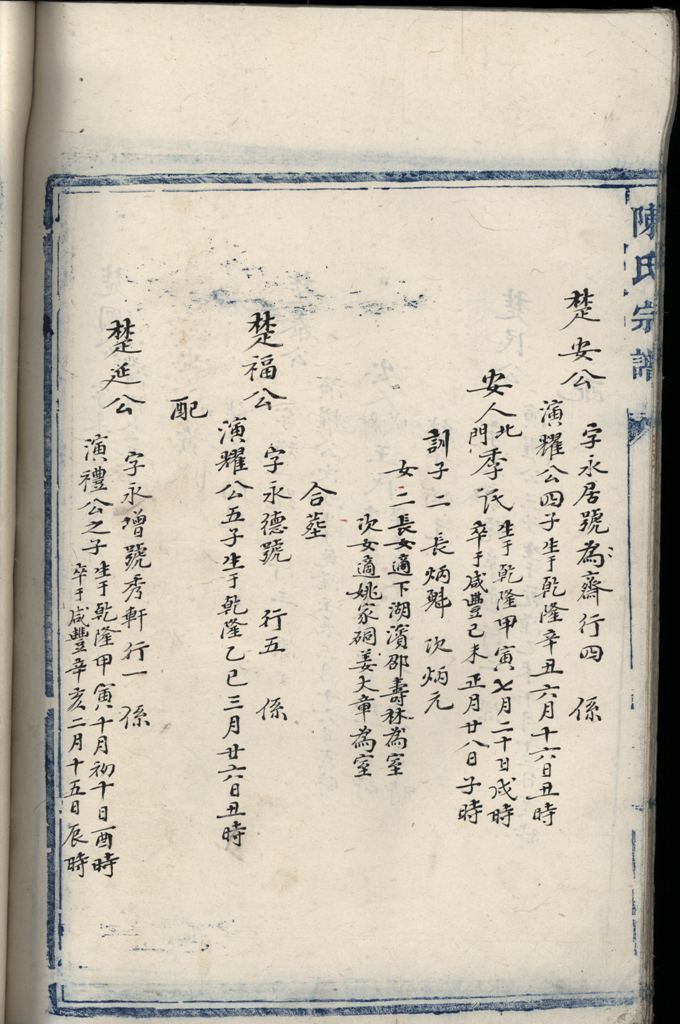 陳氏宗譜
楚安公 字永居號為齋行四 係
演耀公四子生于乾隆辛丑六月十六日丑時
安人北門李氏生于乾隆甲寅七月二十日戌時
卒于咸豐己未正月廿八日子時
訓子二 長炳魁 次炳元
女二長女適下湖濱邵壽林為室
次女適姚家硐姜大章為室
合墓
楚福公 字永德號 行五 係
演耀公五子生于乾隆乙巳三月廿六日丑時
配
楚延公 字永增號秀軒行一 係
演禮公之子生于乾隆甲寅十月初十日酉時
卒于咸豐辛亥二月十五日辰時